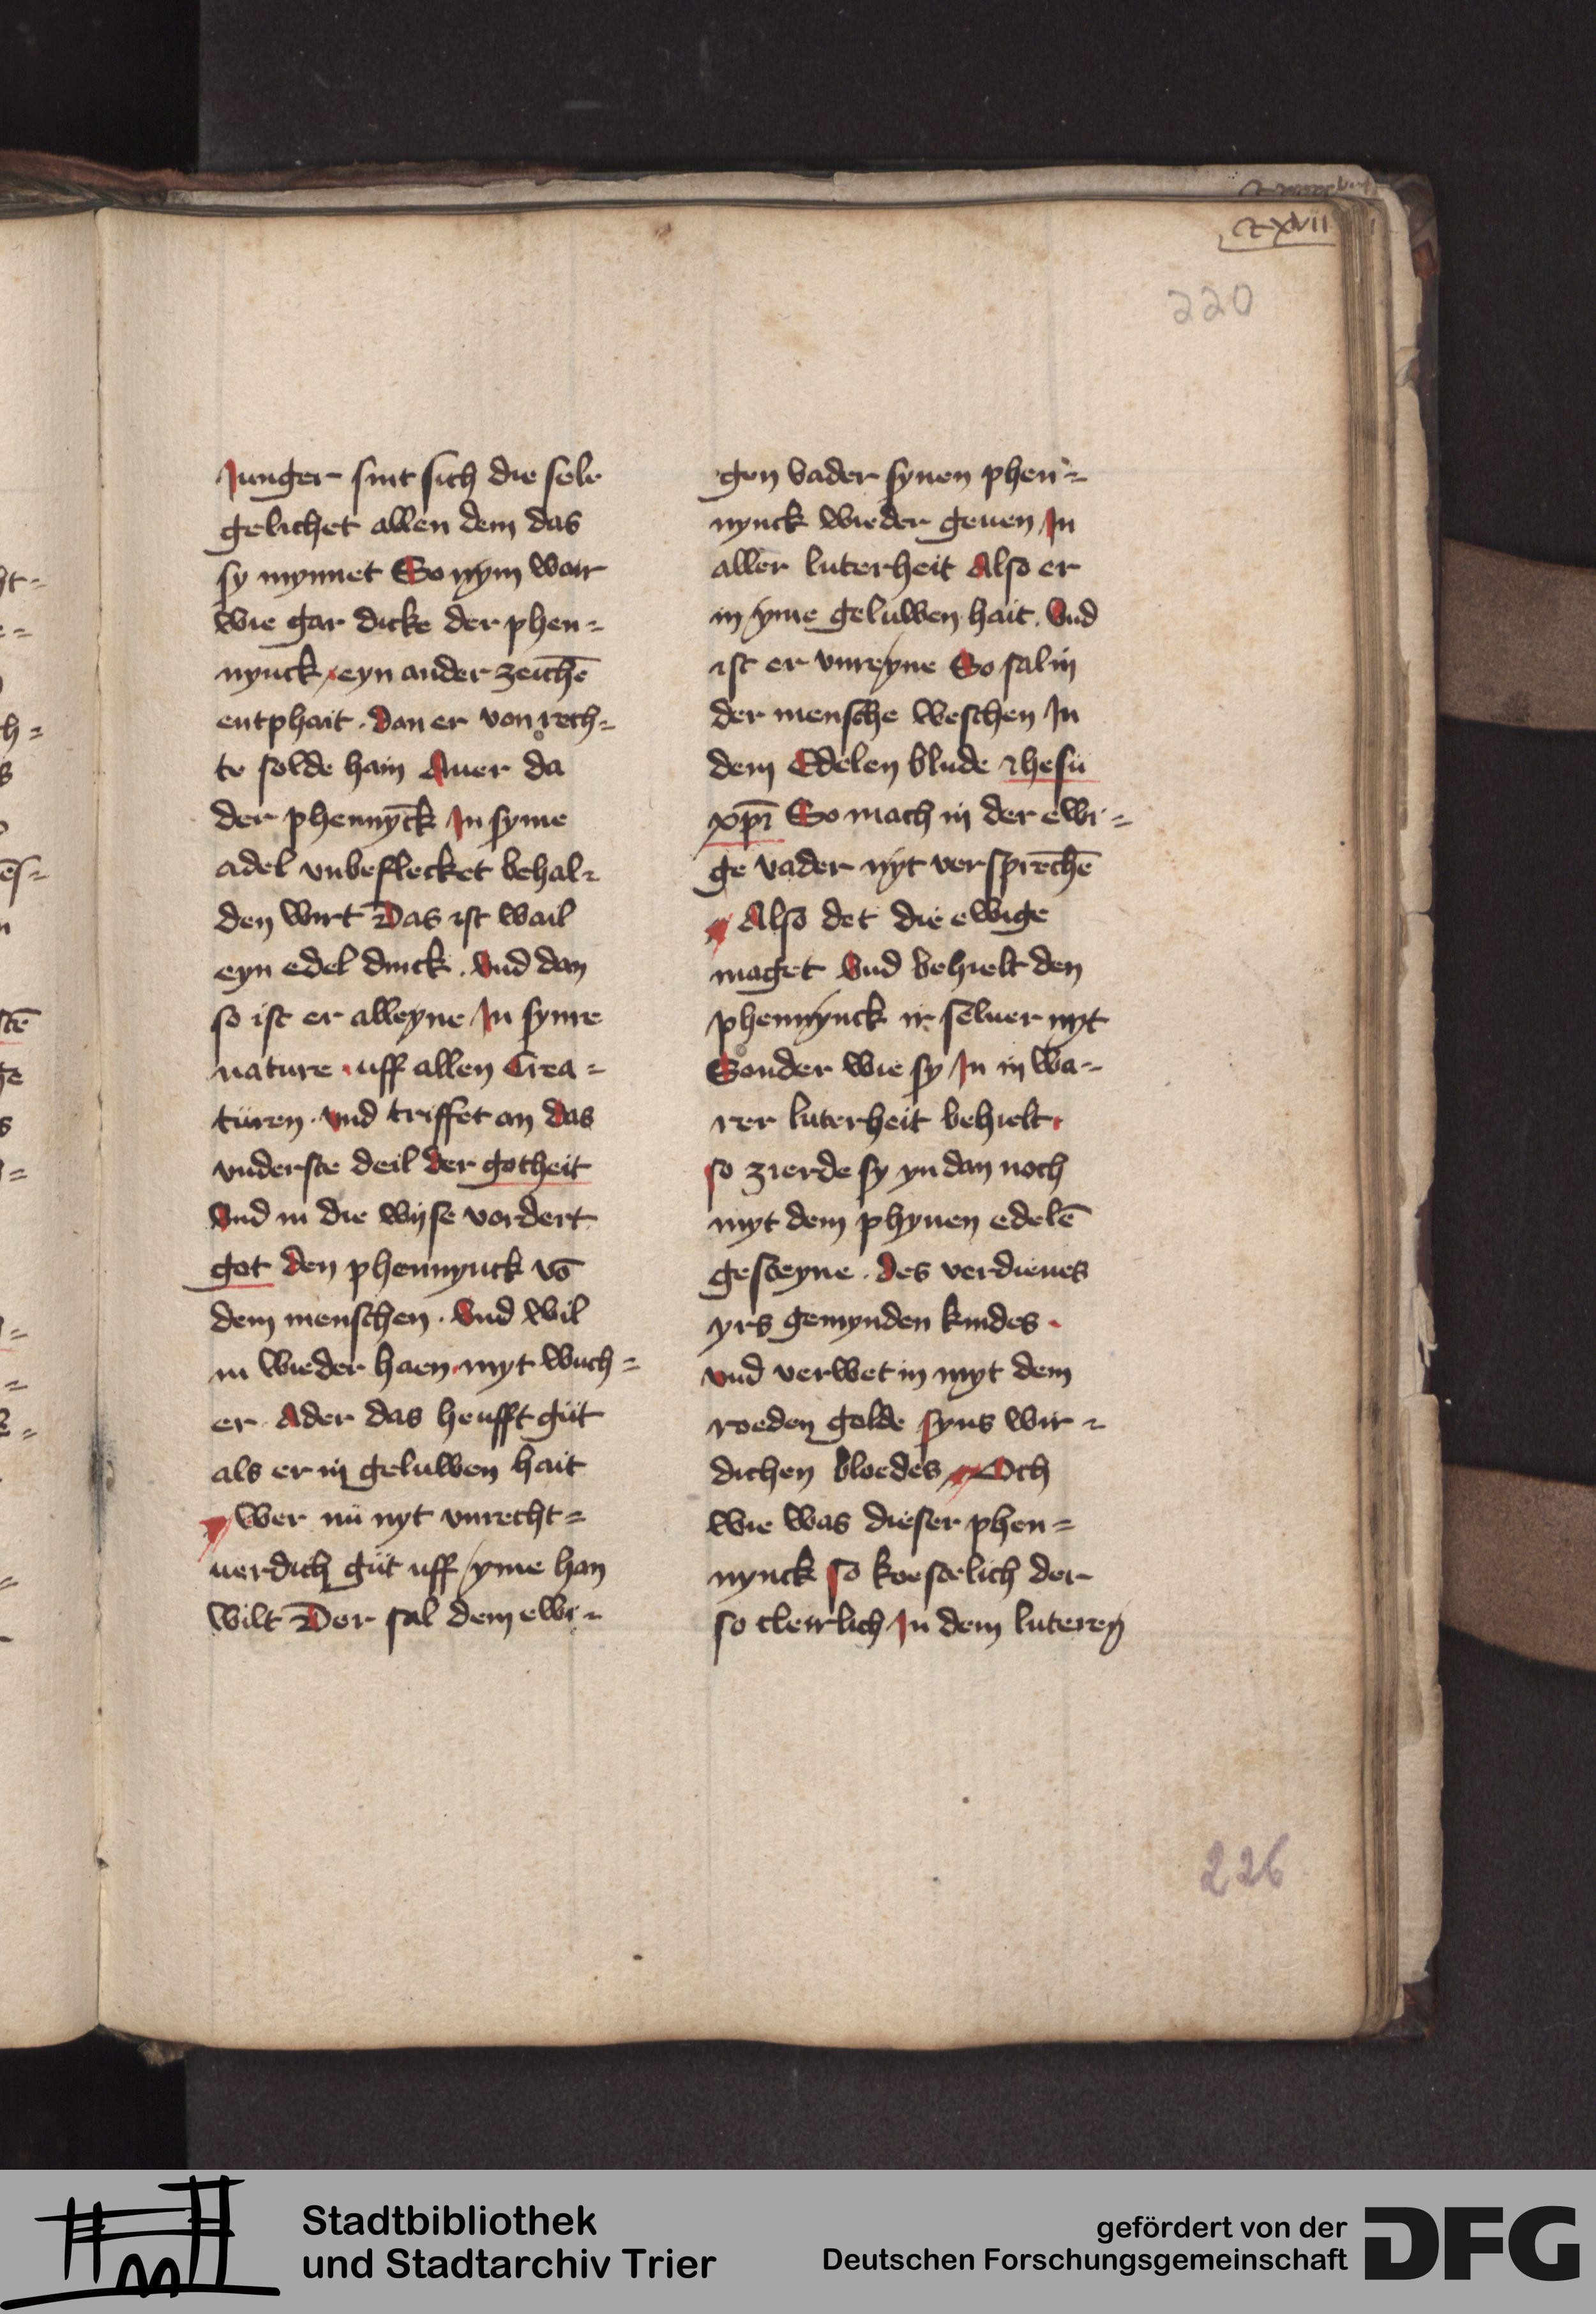 220
Junger sint sich die sele
gelichet allen dem das
sy mynnet So nym war
wie gar dicke der phen=
nynck eyn ander zeichē
entphait. dan er von rech=
te solde hain Auer da
der phennyck In syme
adel vnbeflecket behal=
den wirt Das ist wail
eyn edel dinck. Vnd dan
so ist er alleyne In syme
nature. uff allen Crea=
türen. vnd triffet an das
vnderste deil der gotheit
Vnd in die wijse vordert
got den phennynck vō
dem menschen. Vnd wil
in wieder haen. myt wuch=
er. Ader das heufft güt
als er in geluwen hait
Wer nü nyt vnrecht=
uerdich güt uff yme han
wilt Der sal dem ewi=
gen vader synen phen=
nynck wieder geuen In
aller luterheit Also er
in yme geluwen hait. Vnd
ist er vnreyne So sal in
der mensche weschen In
dem Edelen blude Jhesü
xp̄i So mach in der ewi=
ge vader nyt versprechē
Also det die ewige
maget Vnd behielt den
phennynck ir seluer nyt
Sonder wie sy In in wa=
rer luterheit behielt.
so zierde sy yn dan noch
myt dem phynen edelē
gesteyne. des verdienes
yrs gemynden kindes.
vnd verwet in myt dem
roeden golde syns wir=
dichen bloedes Och
wie was dieser phen=
nynck so koestelich der
so cleirlich In dem luteren
226
Stadtbibliothek
und Stadtarchiv Trier
gefördert von der
Deutschen Forschungsgemeinschaft
DFG